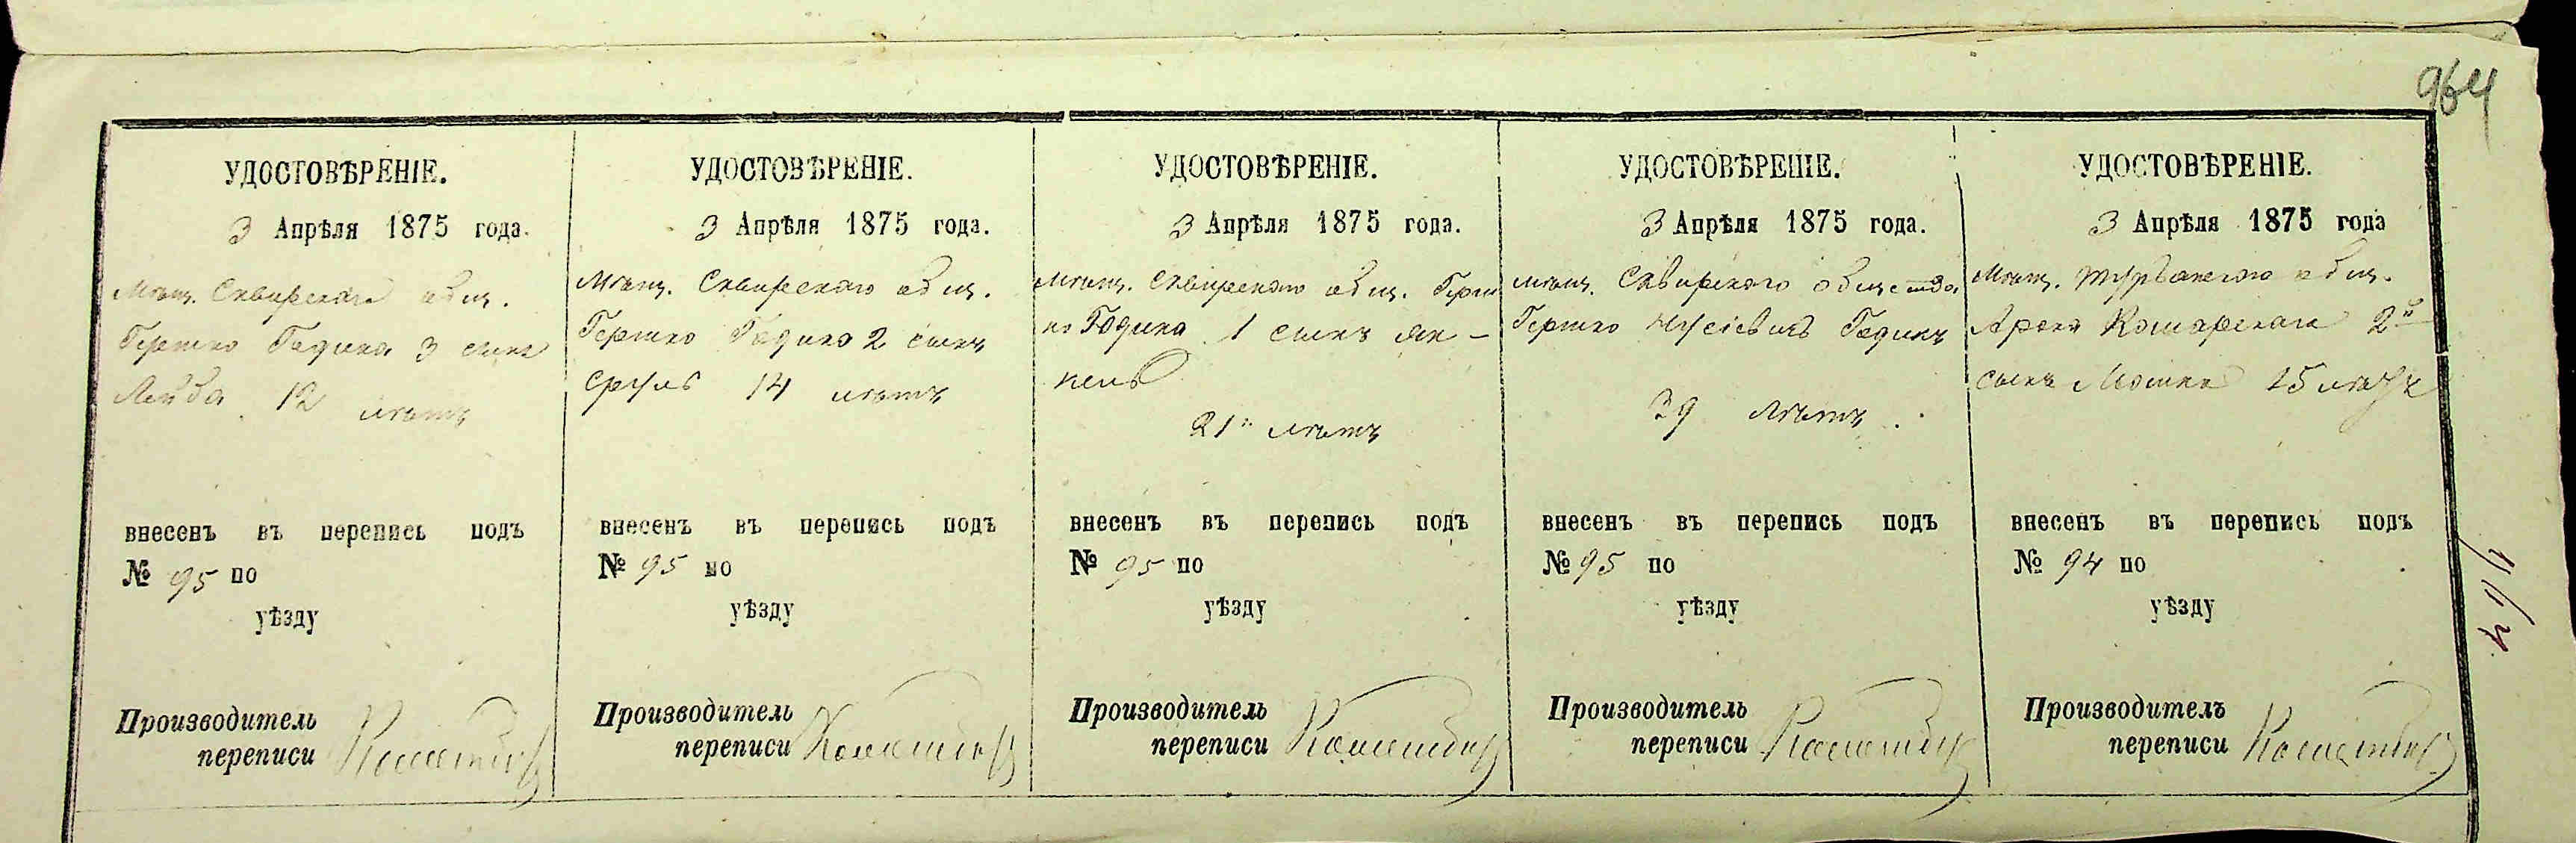 964
УДОСТОВѢРЕНІЕ.
3 Апрѣля 1875 года.
Мѣщ. Сквирскаго общ.
Гершко Година 3 сынъ
Лейба 12 лѣтъ
внесенъ въ перепись подъ
№ 95 по
уѣзду
Производитель
переписи
УДОСТОВѢРЕНІЕ.
3 Апрѣля 1875 года.
Мѣщ. Сквирскаго общ.
Гершко Година 2 сынъ
Сруль 14 лѣтъ
внесенъ въ перепись подъ
№ 95 по
уѣзду
Производитель
переписи
УДОСТОВѢРЕНІЕ.
3 Апрѣля 1875 года.
мѣщ. Сквирскаго общ. Герш
ко Година 1 сынъ Ян-
кель
21 лѣтъ
внесенъ въ перепись подъ
№ 95 по
уѣзду
Производитель
переписи
УДОСТОВѢРЕНІЕ.
3 Апрѣля 1875 года.
мѣщ. Сквирскаго общества
Гершко Годинъ
39 лѣтъ
внесенъ въ перепись подъ
№ 95 по
уѣзду
Производитель
переписи
УДОСТОВѢРЕНІЕ.
3 Апрѣля 1875 года
Мѣщ. общ.
Арона Кошарскаго 2й
сынъ Мошко 15 лѣтъ
внесенъ въ перепись подъ
№ 94 по
уѣзду
Производитель
переписи